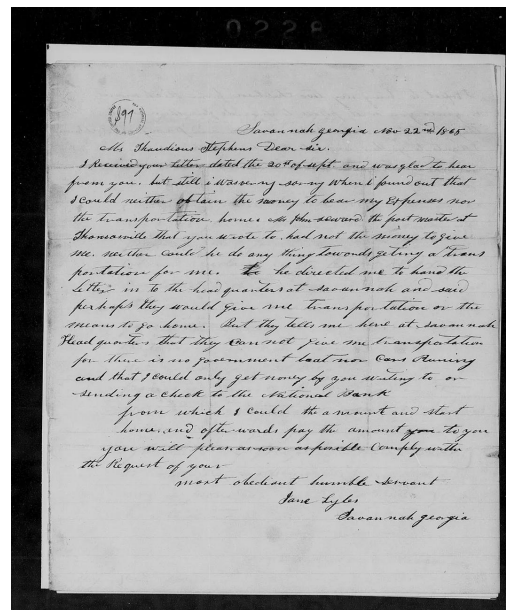 0228
897
Savannah georgia Nov 22nd 1865
Mr Thaudious Stephens Dear sir.
I Received your letter dated the 20th of sept. and was glad to hear
from you, but still i was very sorry when I found out that
I could neither obtain the money to bear my Expenses nor
the transportation home. Mr John Seward the post master at
Thomasville that you wrote to, had not the money to give
me. neither could he do any thing towards geting a trans
portation for me. he directed me to hand the
letter in to the head quarters at Savannah and said
perhaps they would give me transportation or the
means to go home. But they tells me here at Savannah
Head quarters that they can not give me transpotation
for there is no government boat nor Cars Runing
and that I could only get money by you writing to or
sending a check to the National Bank
from which I could the amount and start
home. and afterwards pay the amount to you
you will please as soon as posible Comply with
the Request of your
most obediant humble servant
Jane Lyles
Savannah georgia